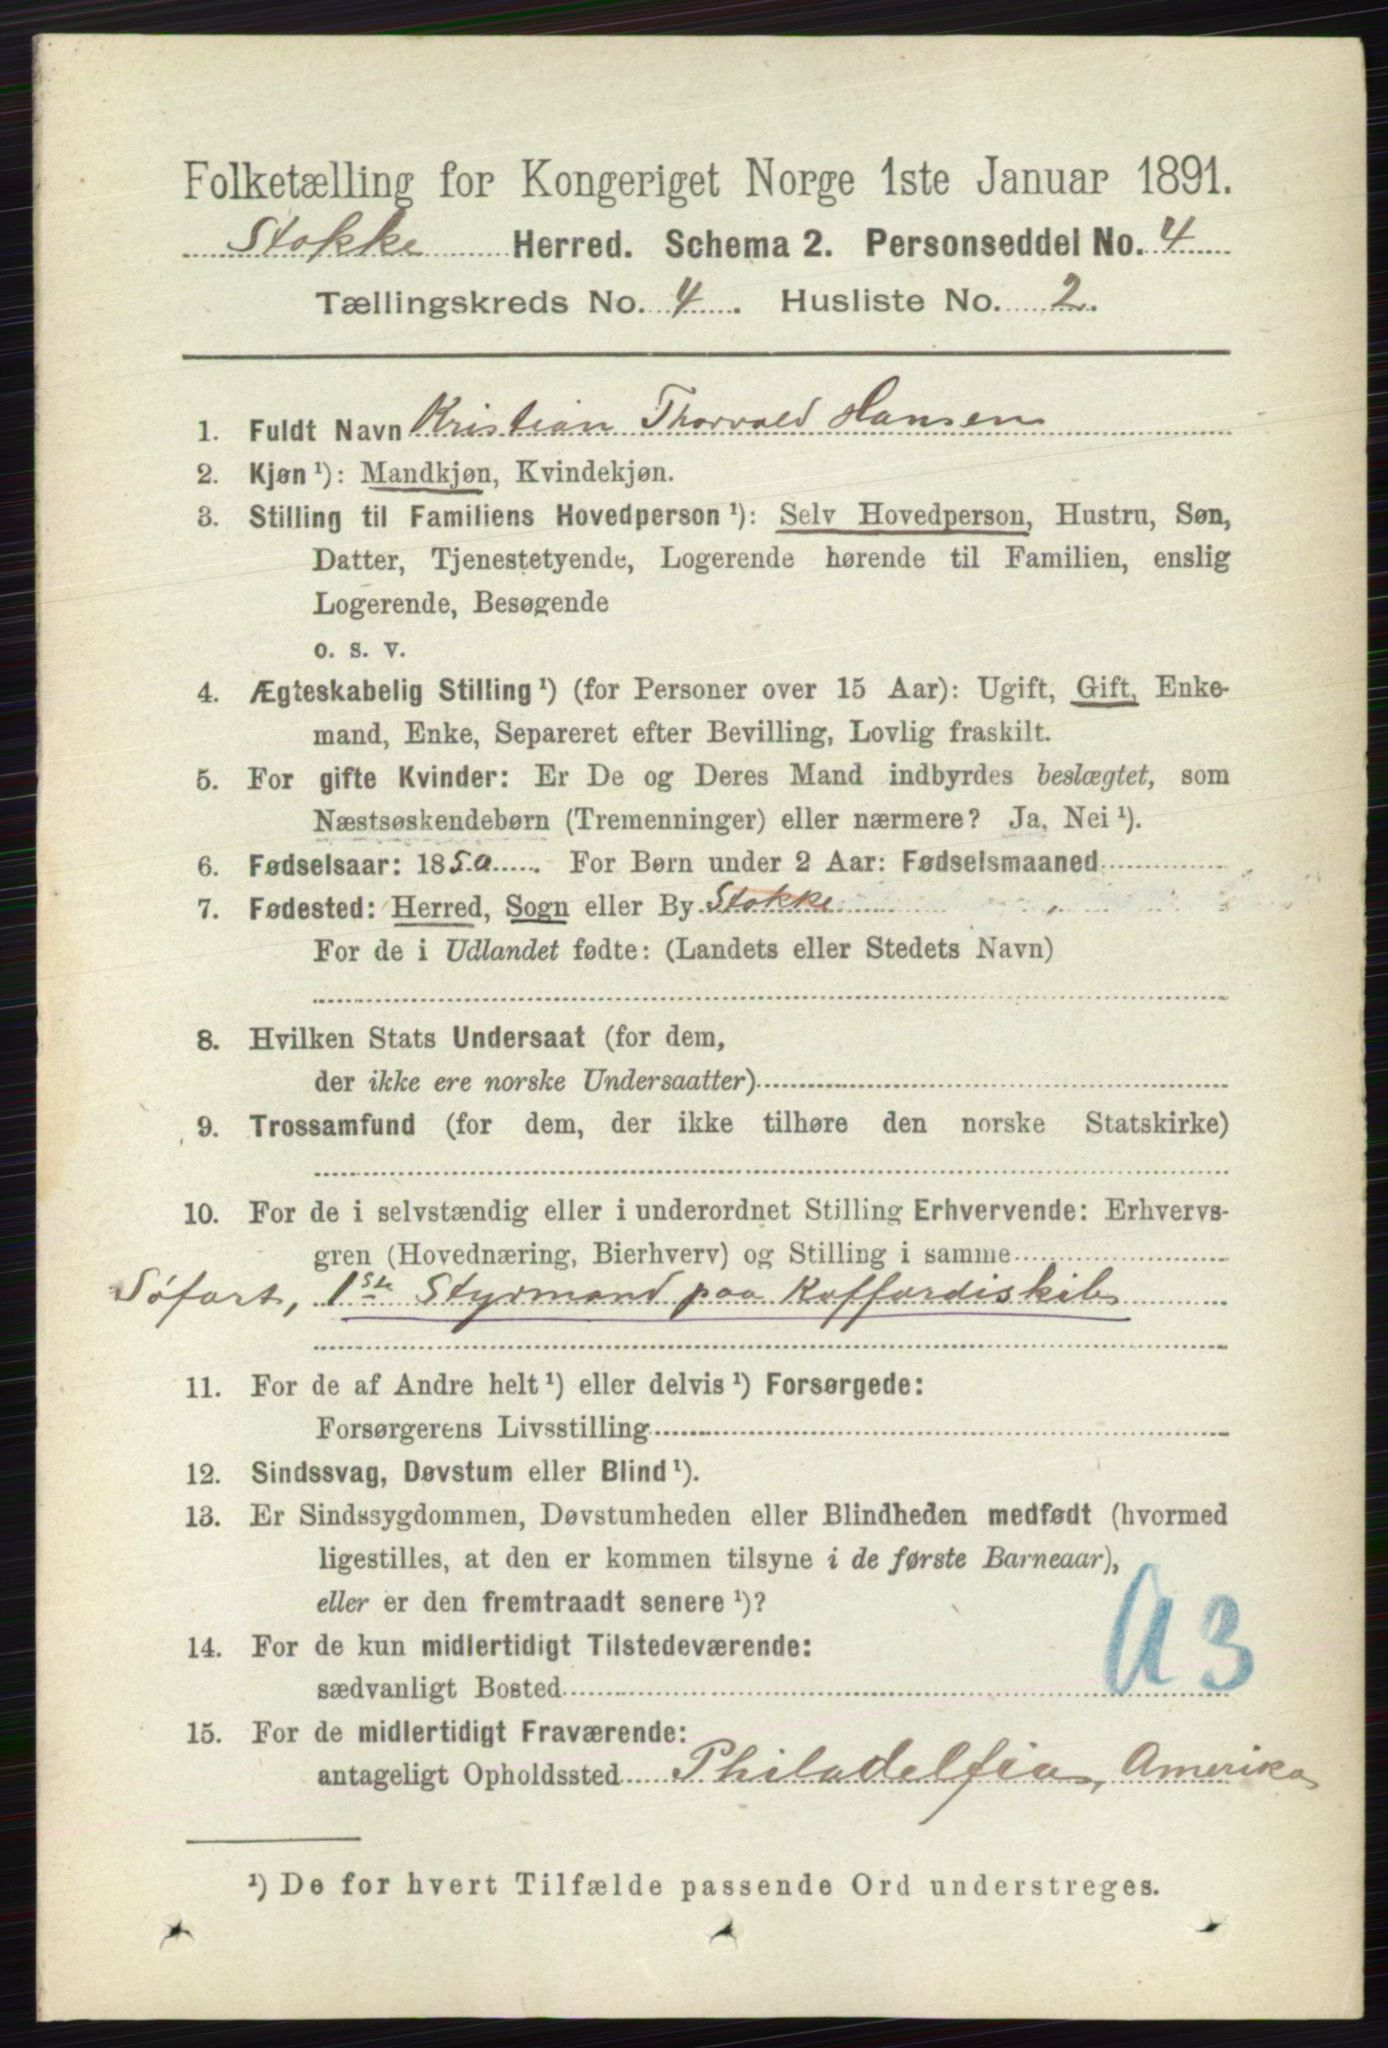 Folketælling for Kongeriget Norge 1ste Januar 1891.
Stokke Herred. Schema 2. Personseddel No. 4
Tællingskreds No. 4. Husliste No. 2.
1. Fuldt Navn Kristian Thorvald Hansen
2. Kjøn ¹): Mandkjøn, Kvindekjøn.
3. Stilling til Familiens Hovedperson ¹): Selv Hovedperson, Hustru, Søn,
Datter, Tjenestetyende, Logerende hørende til Familien, enslig
Logerende, Besøgende
o. s. v.
4. Ægteskabelig Stilling ¹) (for Personer over 15 Aar): Ugift, Gift, Enke-
mand, Enke, Separeret efter Bevilling, Lovlig fraskilt.
5. For gifte Kvinder: Er De og Deres Mand indbyrdes beslægtet, som
Næstsøskendebørn (Tremenninger) eller nærmere? Ja, Nei ¹).
6. Fødselsaar: 1850. For Børn under 2 Aar: Fødselsmaaned
7. Fødested: Herred, Sogn eller By Stokke
For de i Udlandet fødte: (Landets eller Stedets Navn)
8. Hvilken Stats Undersaat (for dem,
der ikke ere norske Undersaatter)
9. Trossamfund (for dem, der ikke tilhøre den norske Statskirke)
10. For de i selvstændig eller i underordnet Stilling Erhvervende: Erhvervs-
gren (Hovednæring, Bierhverv) og Stilling i samme
Søfart, 1ste Styrmand paa Koffardiskib
11. For de af Andre helt ¹) eller delvis ¹) Forsørgede:
Forsørgerens Livsstilling
12. Sindssvag, Døvstum eller Blind ¹).
13. Er Sindssygdommen, Døvstumheden eller Blindheden medfødt (hvormed
ligestilles, at den er kommen tilsyne i de første Barneaar),
eller er den fremtraadt senere ¹)?
A3
14. For de kun midlertidigt Tilstedeværende:
sædvanligt Bosted
15. For de midlertidigt Fraværende:
antageligt Opholdssted Philadelfia, Amerika
¹) De for hvert Tilfælde passende Ord understreges.